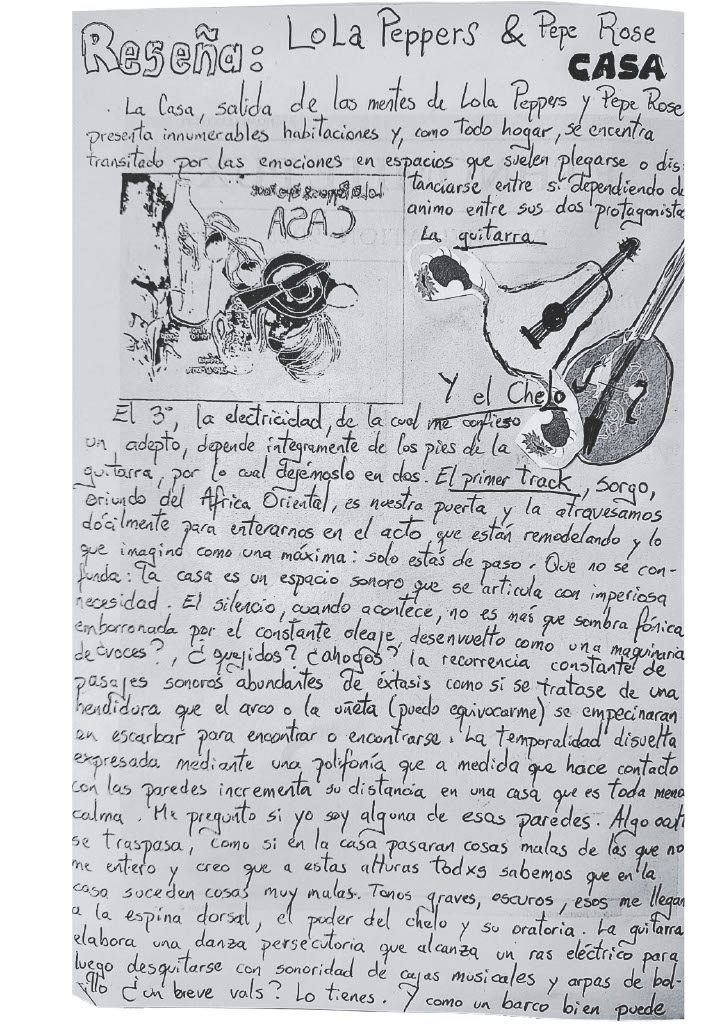 Reseña: Lola Peppers & Pepe Rose
CASA
. La Casa, salida de las mentes de Lola Peppers y Pepe Rose
presenta innumerables habitaciones y, como todo hogar, se encentra
transitado por las emociones en espacios que suelen plegarse o dis-
tanciarse entre sí dependiendo del
animo entre sus dos protagonistas
La guitarra
CASA
Y el Chelo
El 3º, la electricidad, de la cual me confieso
un adepto, depende íntegramente de los pies de la
guitarra, por lo cual dejémoslo en dos. El primer track, Sorgo,
oriundo del Africa Oriental, es nuestra puerta y la atravesamos
dócilmente para enterarnos en el acto que están remodelando y lo
que imagino como una máxima: solo estás de paso. Que no se con-
funda: la casa es un espacio sonoro que se articula con imperiosa
necesidad. El silencio, cuando acontece, no es más que sombra fónica
emborronada por el constante oleaje, desenvuelto como una maquinaria
de ¿voces?, ¿quejidos? ¿ahogos? la recurrencia constante de
pasajes sonoros abundantes de éxtasis como si se tratase de una
hendidura que el arco o la uñeta (puedo equivocarme) se empecinaran
en escarbar para encontrar o encontrarse. La temporalidad disuelta
expresada mediante una polifonía que a medida que hace contacto
con las paredes incrementa su distancia en una casa que es toda menos
calma. Me pregunto si yo soy alguna de esas paredes. Algo
se traspasa, como si en la casa pasaran cosas malas de las que no
me entero y creo que a estas alturas todxs sabemos que en la
casa suceden cosas muy malas. Tonos graves, oscuros, esos me llegan
a la espina dorsal, el poder del chelo y su oratoria. La guitarra
elabora una danza persecutoria que alcanza un ras eléctrico para
luego desquitarse con sonoridad de cajas musicales y arpas de bol-
sillo ¿un breve vals? Lo tienes. Y como un barco bien puede